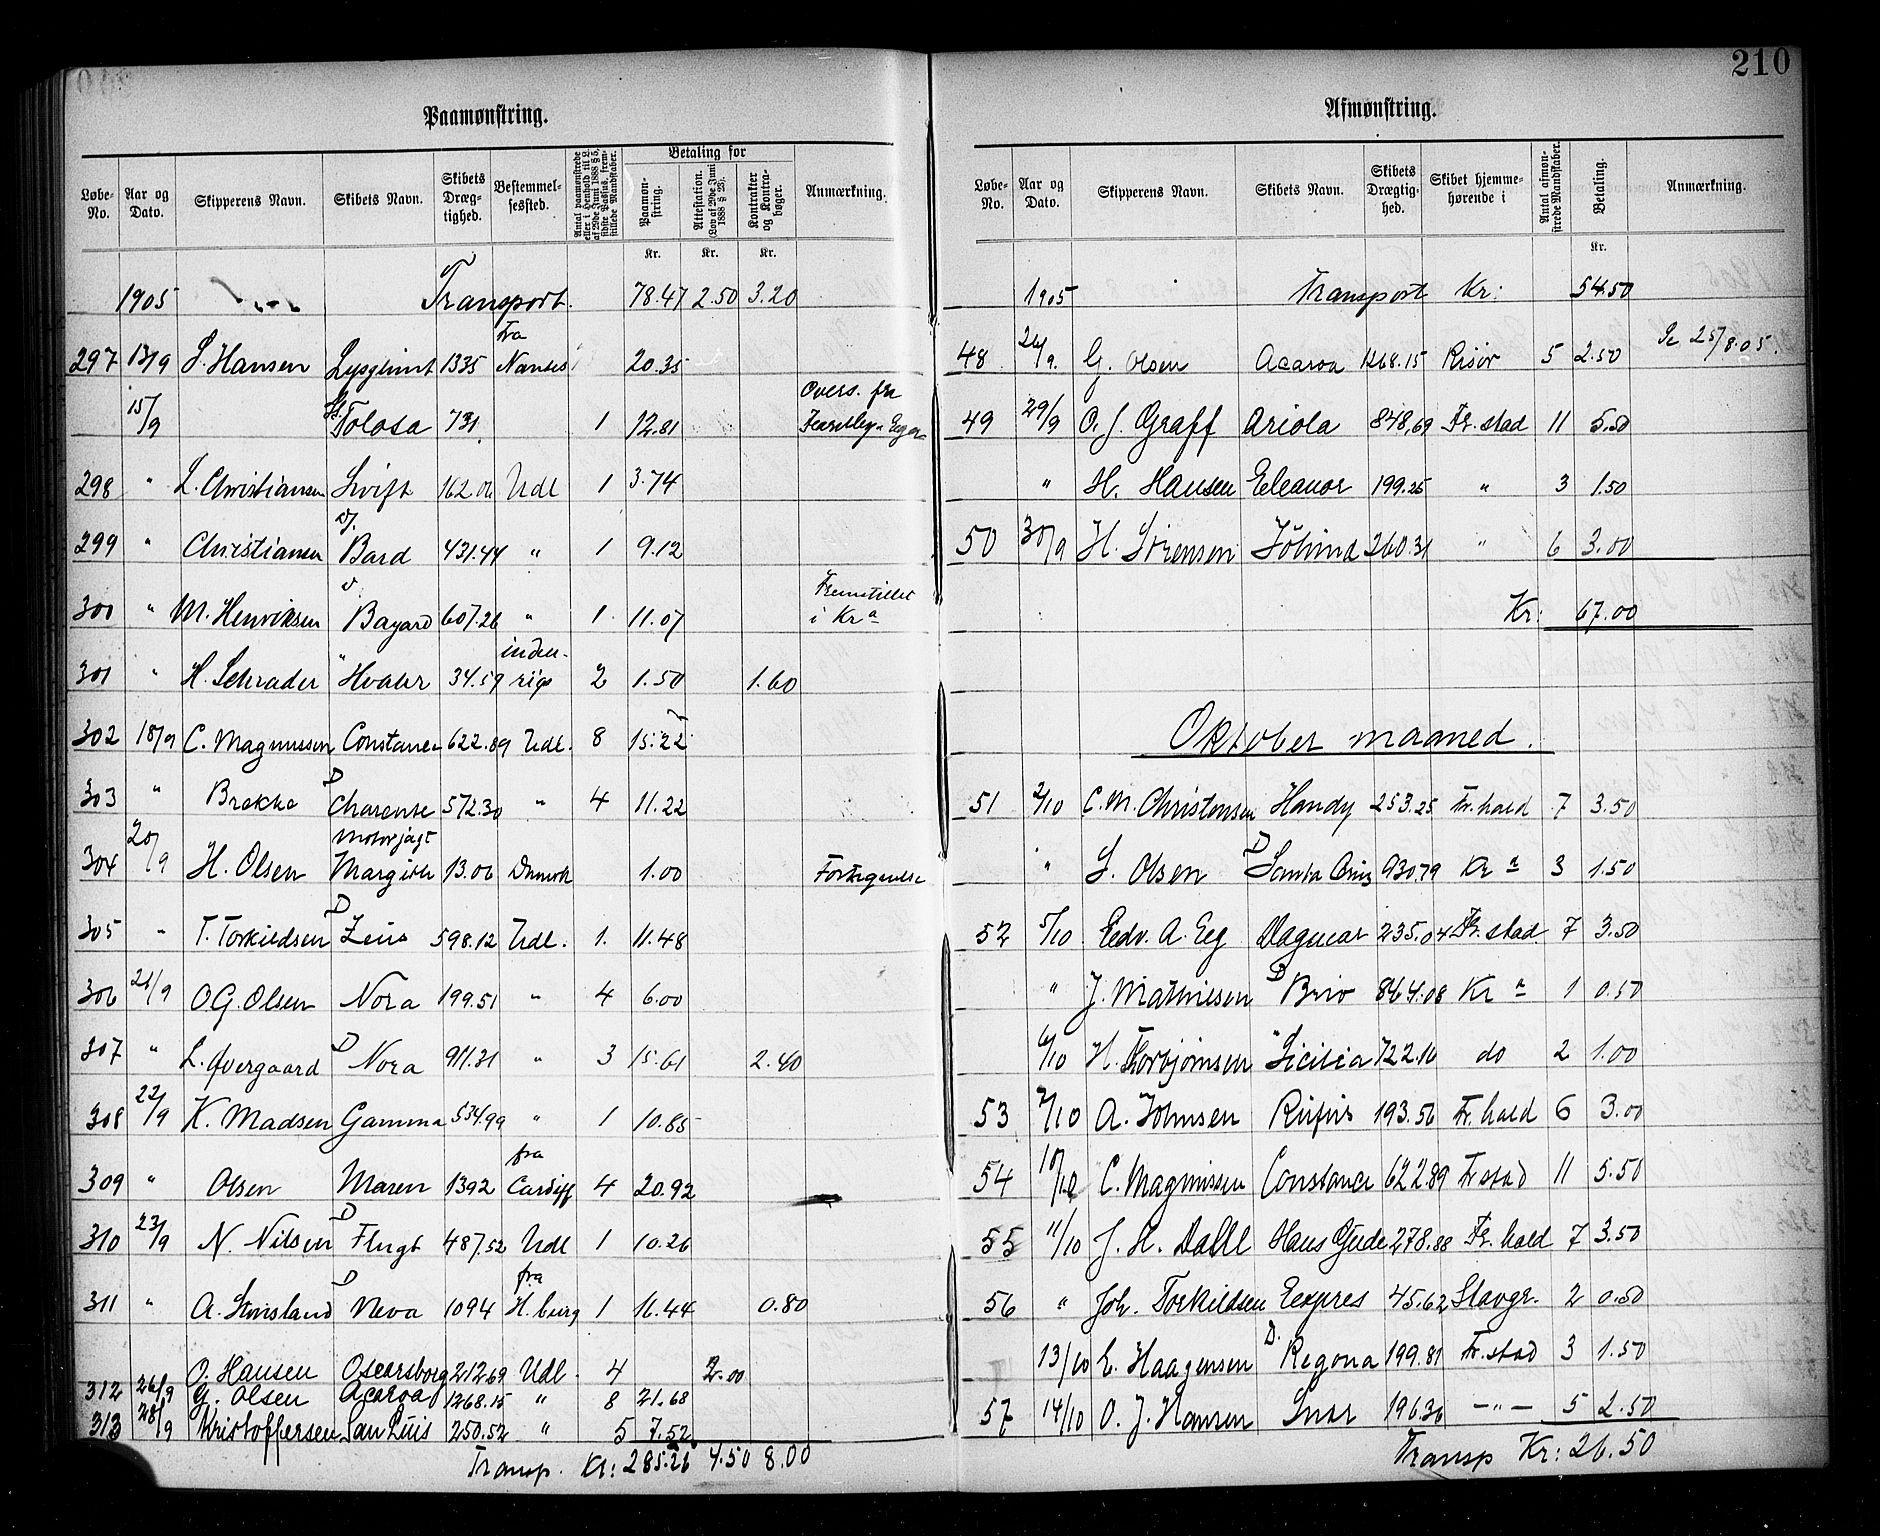 210
Paamønstring.
Løbe-No. Aar og Dato. Skipperens Navn. Skibets Navn. Skibets Dræg-tighed. Bestemmel-sessted. Antal paamønstrede eller i Henhold til L. af 29de Juni 1888 § 5, sidste Passus, frem-stillede Mandskaber. Betaling for Paamøn-string. Attestation. (Lov af 29de Juni 1888 § 23). Kontrakter og Kontra-bøger. Anmærkning.
Kr. Kr. Kr.
1905 Transport. 78.47 2.50 3.20
297 13/9 S. Hansen Lysglimt 1335 fra Nantes 20.35
15/9 Tolosa 731 1 12.81 Overs. fra
298 " L. Christiansen Swift 162.06 Udl 1 3.74
299 " Christiansen Bard 431.44 " 1 9.12
300 " M. Henriksen Bayard 607.26 " 1 11.07 Fremstillet i Kra
301 " H. Schrader " Hvaler 34.59 inden-rigs 2 1.50 1.60
302 18/9 C. Magnussen Constance 622.89 Udl. 8 15.22
303 " Brekke D Charente 572.30 " 4 11.22
304 20/9 H. Olsen Motorjagt Margith 13.06 Danmark 1.00 Fortegnelse
305 " T. Torkildsen D Zeus 598.12 Udl. 1. 11.48
306 21/9 O.G. Olsen Nora 199.51 " 4 6.00
307 " L. Øvergaard D Nora 911.31 " 3 15.61 2.40
308 22/9 K. Madsen Gamma 534.99 " 1 10.85
309 " Olsen Maren 1392 fra Cardiff 4 20.92
310 23/9 N. Nilsen D Flugt 487.52 Udl 1 10.26
311 " A. D Neva 1094 fra H.burg 1 16.44 0.80
O. Hansen Oscarsborg 212.69 Udl. 4 2.00
312 26/9 G. Olsen Acaroa 1268.15 " 8 21.68
313 28/9 Kristoffersen San Luis 250.52 " 5 7.52
Transp. Kr: 285.26 4.50 8.00
Afmønstring.
Løbe-No. Aar og Dato. Skipperens Navn. Skibets Navn. Skibets Drægtig-hed. Skibet hjemme-hørende i Antal afmøn-strede Mandskaber. Betaling. Anmærkning.
Kr.
1905 Transport Kr: 54.50
48 26/9. G. Olsen Acaroa 1268.15 Risør 5 2.50 25/8.05.
49 29/9 O. J. Graff Ariola 848,69 Fr.stad 11 5.50
" H. Hansen Eleanor 199.25 " 3 1.50
50 30/9 H. Sörensen 260.31 " 6 3.00
Kr: 67.00
Oktober maaned.
51 2/10 C. M. Christensen Handy 253.25 Fr.hald 7 3.50
" S. Olsen D Santa Cruz 930.79 Kra 3 1.50
52 5/10 Edv. A. Eeg Dagmar 235.04 Fr.stad. 7 3.50
" J. Mathiesen D Brio 864.08 Kra 1 0.50
6/10 H. Thorbjørnsen " Sicilia 722.16 do 2 1.00
53 7/10 A. Johnsen Rufus 193.56 Fr.hald 6 3.00
54 10/10 C. Magnussen Constance 622.89 Fr.stad 11 5.50
55 11/10 J. H. Dahl Hans Gude 278.88 Fr.hald 7 3.50
56 " Joh. Torkildsen Expres 45.62 Stavgr. 2 0.50
13/10 E. Haagensen D. Regona 199.81 Fr.stad 3 1.50
57 14/10 O. J. Hansen Snar 196.36 —"— 5 2.50
Transp Kr: 26.50